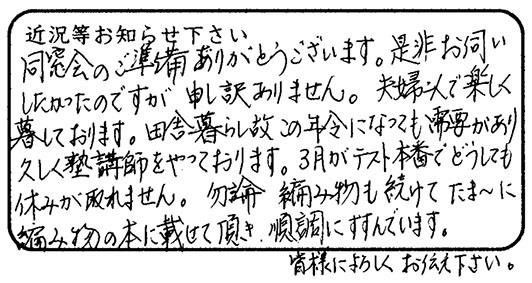 近況等お知らせ下さい
同窓会のご準備ありがとうございます。是非お伺い
したかったのですが 申し訳ありません。夫婦二人で楽しく
暮しております。田舎暮らし故この年令になっても需要があり
久しく塾講師をやっております。3月がテスト本番でどうしても
休みが取れません。勿論 編み物も続けて たま〜に
編み物の本に載せて頂き、順調にすすんでいます。
皆様によろしく お伝え下さい。